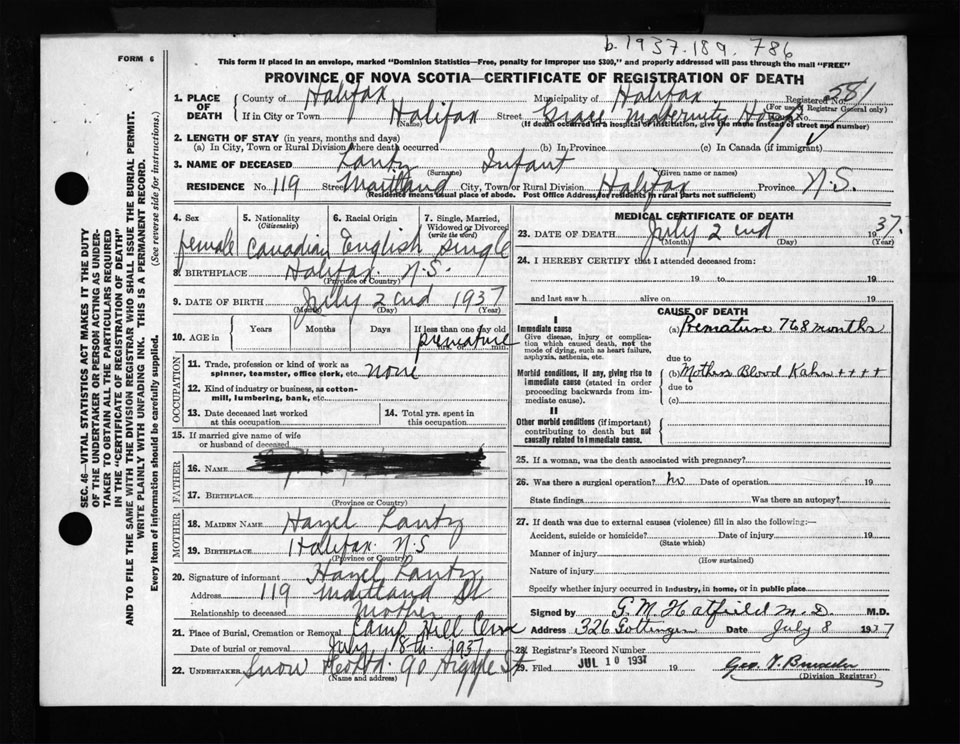 b. 1937. 189. 786
FORM 6
This form if placed in an envelope, marked "Dominion Statistics—Free, penalty for improper use $300," and properly addressed will pass through the mail "FREE"
PROVINCE OF NOVA SCOTIA—CERTIFICATE OF REGISTRATION OF DEATH
1. PLACE OF DEATH
County of Halifax Municipality of Halifax Registered No. 381
(For use of Registrar General only)
If in City or Town Halifax Street Grace Maternity Hosp. No.
(Name) (If death occurred in a hospital or institution, give the name instead of street and number)
2. LENGTH OF STAY (in years, months and days)
(a) In City, Town or Rural Division where death occurred (b) In Province (c) In Canada (if immigrant)
3. NAME OF DECEASED Lantz Infant
(Surname) (Given name or names)
RESIDENCE No. 119 Street Maitland City, Town or Rural Division Halifax Province N.S.
(Residence means usual place of abode. Post Office Address for residents in rural parts not sufficient)
4. Sex 5. Nationality (Citizenship) 6. Racial Origin 7. Single, Married, Widowed or Divorced (write the word)
female Canadian English single
8. BIRTHPLACE Halifax. N.S.
(Province or Country)
9. DATE OF BIRTH July 2cnd 1937
(Month) (Day) (Year)
10. AGE in Years Months Days If less than one day old
premature
hrs. or min.
OCCUPATION
11. Trade, profession or kind of work as spinner, teamster, office clerk, etc. none
12. Kind of industry or business, as cotton-mill, lumbering, bank, etc.
13. Date deceased last worked at this occupation 14. Total yrs. spent in this occupation
15. If married give name of wife or husband of deceased
FATHER
16. NAME
17. BIRTHPLACE
(Province or Country)
MOTHER
18. MAIDEN NAME Hazel Lantz
19. BIRTHPLACE Halifax. N.S
(Province or Country)
20. Signature of informant Hazel Lantz
Address 119 Maitland St
Relationship to deceased Mother
21. Place of Burial, Cremation or Removal Camp Hill Cem
Date of burial or removal July 18th. 1937
22. UNDERTAKER Snow & Co Ltd. 90 Argyle St
(Name and address)
MEDICAL CERTIFICATE OF DEATH
23. DATE OF DEATH July 2cnd 1937.
(Month) (Day) (Year)
24. I HEREBY CERTIFY that I attended deceased from:
19 to 19
and last saw h alive on 19
CAUSE OF DEATH
I
Immediate cause
Give disease, injury or complication which caused death, not the mode of dying, such as heart failure, asphyxia, asthenia, etc.
(a) Premature 7 to 8 months
due to
Morbid conditions, if any, giving rise to immediate cause (stated in order proceeding backwards from immediate cause).
(b) Mothers Blood Kahn ++++
due to
(c)
II
Other morbid conditions (if important) contributing to death but not causally related to immediate cause.
25. If a woman, was the death associated with pregnancy?
26. Was there a surgical operation? no Date of operation 19
State findings Was there an autopsy?
27. If death was due to external causes (violence) fill in also the following:—
Accident, suicide or homicide? Date of injury 19
(State which)
Manner of injury
(How sustained)
Nature of injury
Specify whether injury occurred in industry, in home, or in public place
Signed by G. M. Hatfield M.D. M.D.
Address 326 Gottingen Date July 8 1937
28. Registrar's Record Number
29. Filed JUL 10 1937 19
(Division Registrar)
SEC. 46—VITAL STATISTICS ACT MAKES IT THE DUTY
OF THE UNDERTAKER OR PERSON ACTING AS UNDER-
TAKER TO OBTAIN ALL THE PARTICULARS REQUIRED
IN THE "CERTIFICATE OF REGISTRATION OF DEATH"
AND TO FILE THE SAME WITH THE DIVISION REGISTRAR WHO SHALL ISSUE THE BURIAL PERMIT.
WRITE PLAINLY WITH UNFADING INK. THIS IS A PERMANENT RECORD.
Every item of information should be carefully supplied. (See reverse side for instructions.)